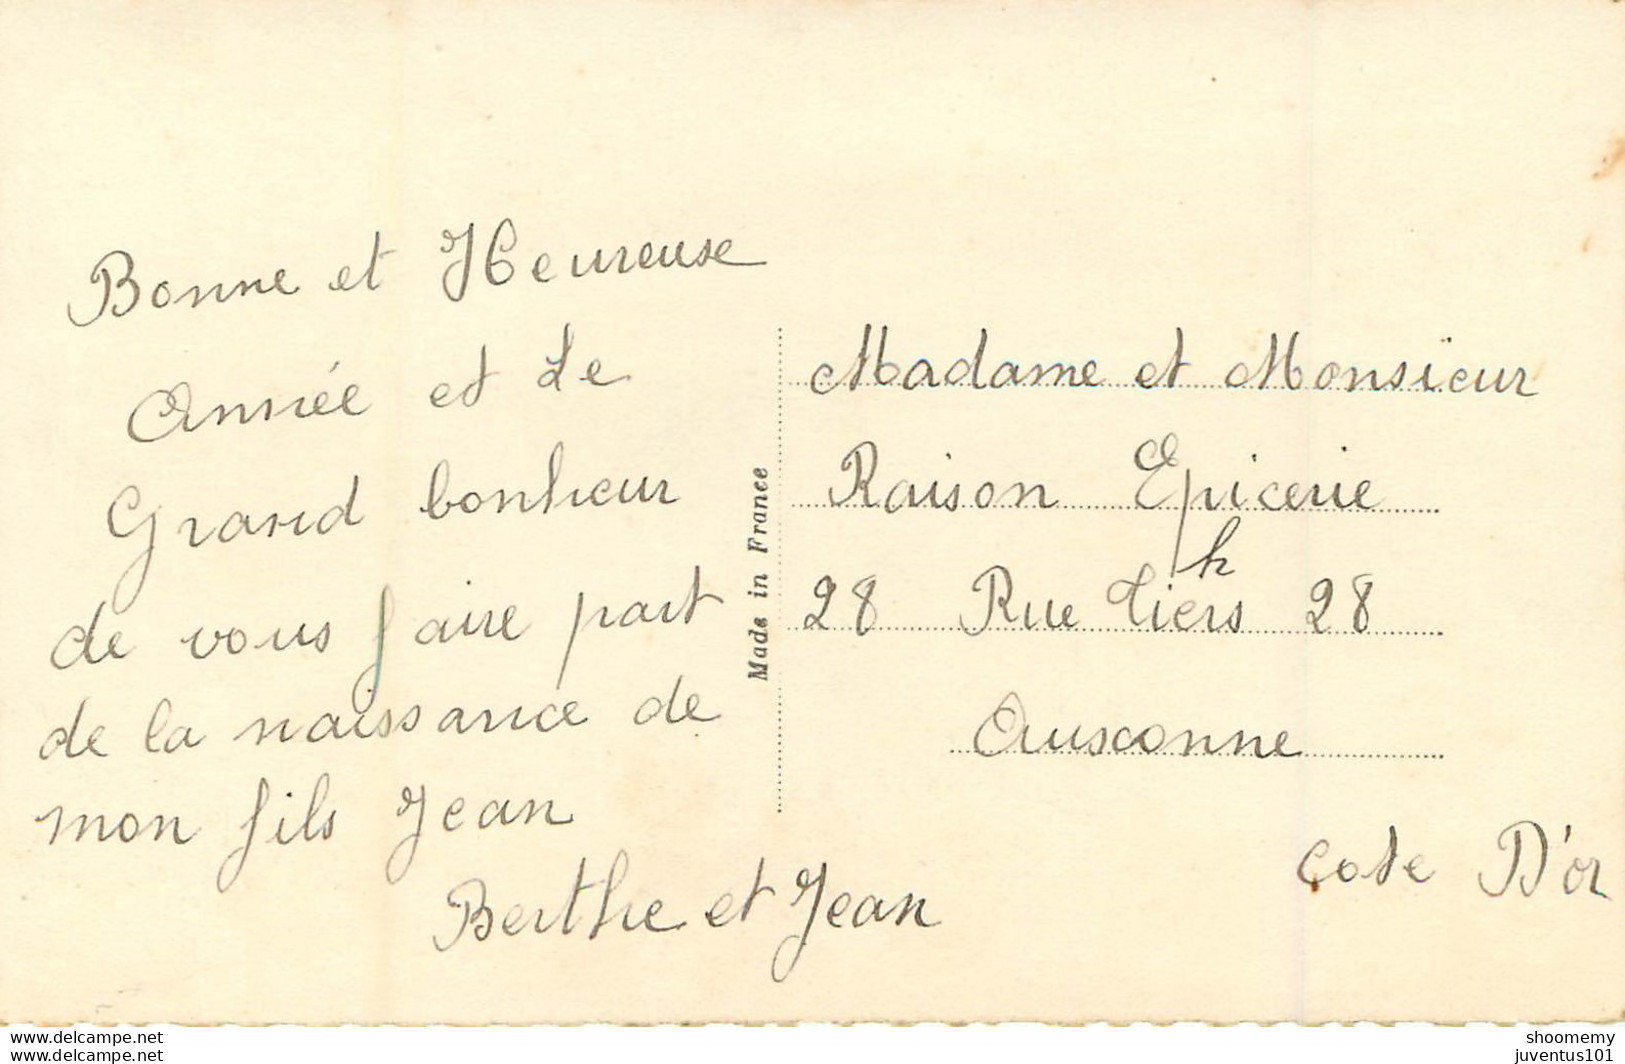 Bonne et Heureuse
Année et Le
Grand bonheur
de vous faire part
de la naissance de
mon fils Jean
Berthe et Jean
Made in France
Madame et Monsieur
Raison Epicerie
28 Rue Thiers 28
Ausconne
Cote D'or
www.delcampe.net
www.delcampe.net
shoomemy
juventus101